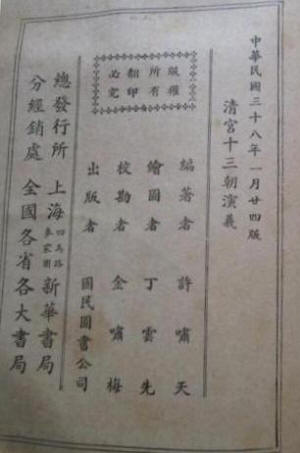 中華民國三十八年一月廿四版
清宮十三朝演義
版權
所有
翻印
必究
編著者　許嘯天
繪圖者　丁雲先
校勘者　金嘯梅
出版者　國民圖書公司
總發行所　上海四馬路麥家圈新華書局
分經銷處　全國各省各大書局